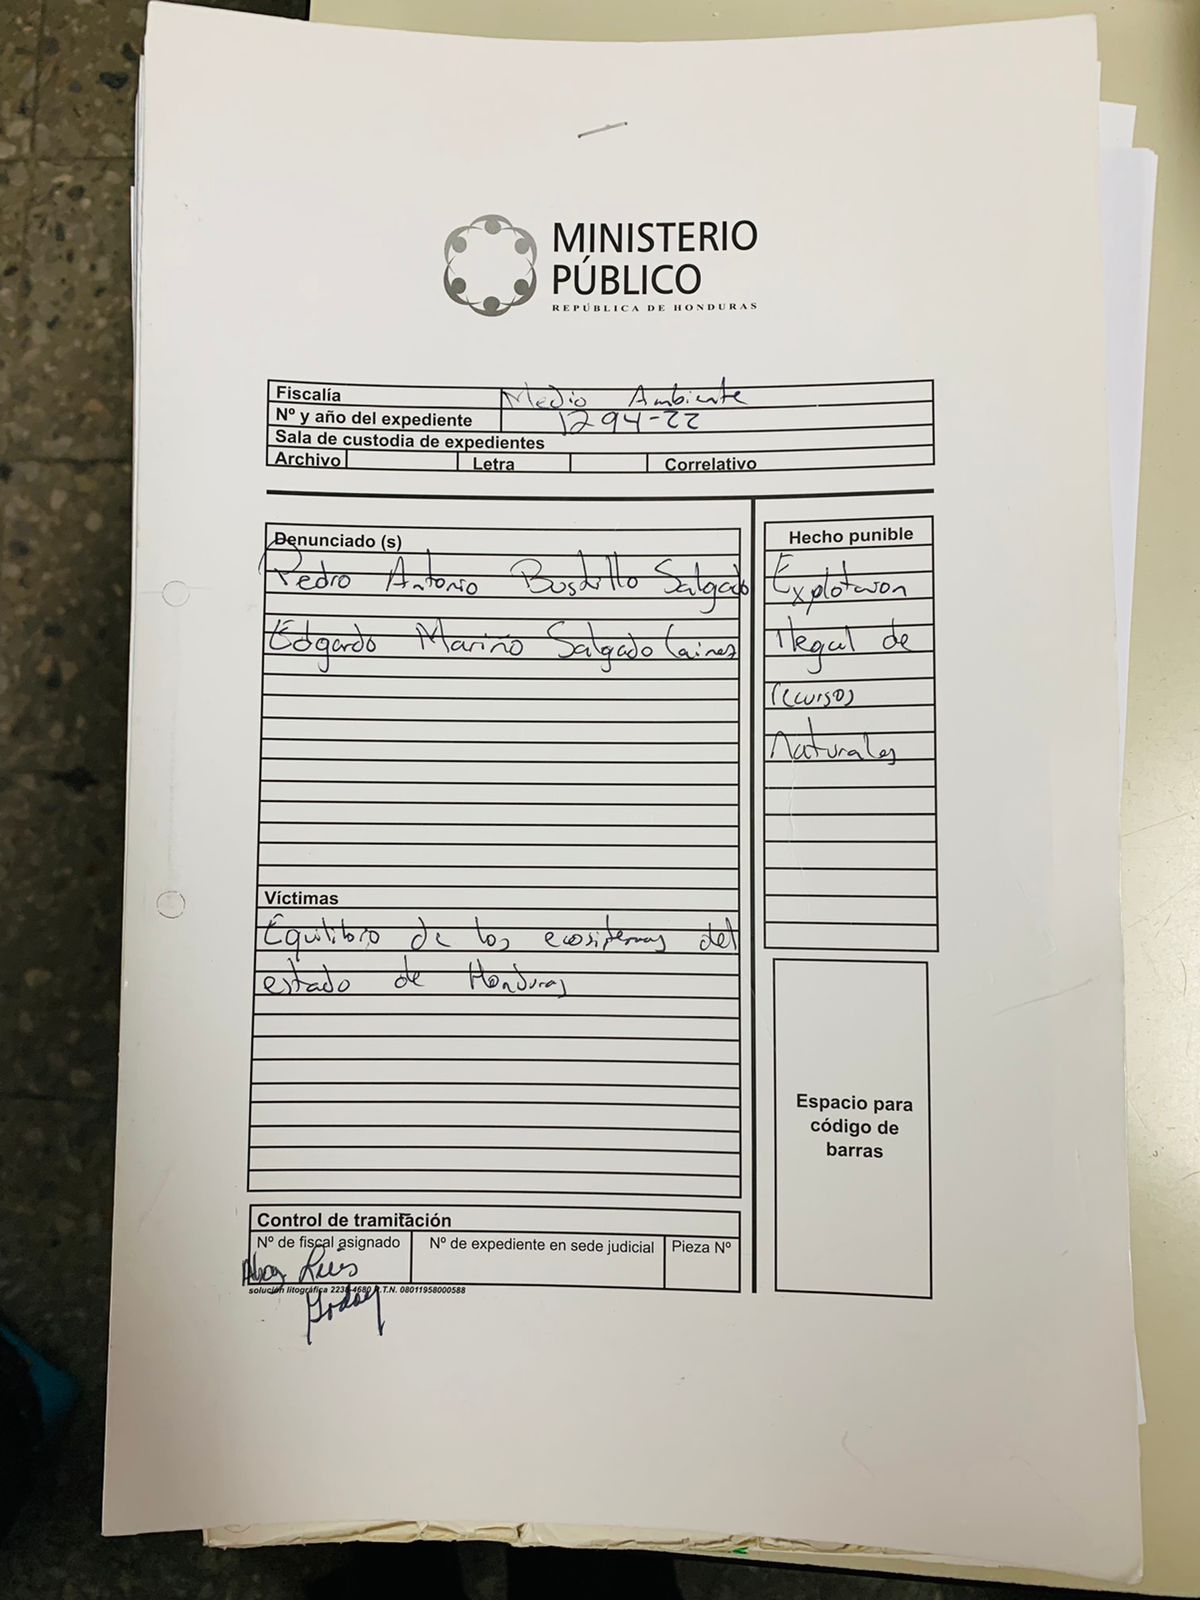 MINISTERIO
PÚBLICO
REPÚBLICA DE HONDURAS
Fiscalía Medio Ambiente
Nº y año del expediente 1294-22
Sala de custodia de expedientes
Archivo Letra Correlativo
Denunciado (s)
Pedro Antonio Bustillo Salgado
Edgardo Mariño Salgado Laines
Hecho punible
Explotacion
Ilegal de
recursos
Naturales
Víctimas
Equilibrio de los ecosistemas del
estado de Honduras
Espacio para
código de
barras
Control de tramitación
Nº de fiscal asignado Nº de expediente en sede judicial Pieza Nº
Abog Luis
Godoy
solución litográfica 2238-4680 R.T.N. 08011958000588